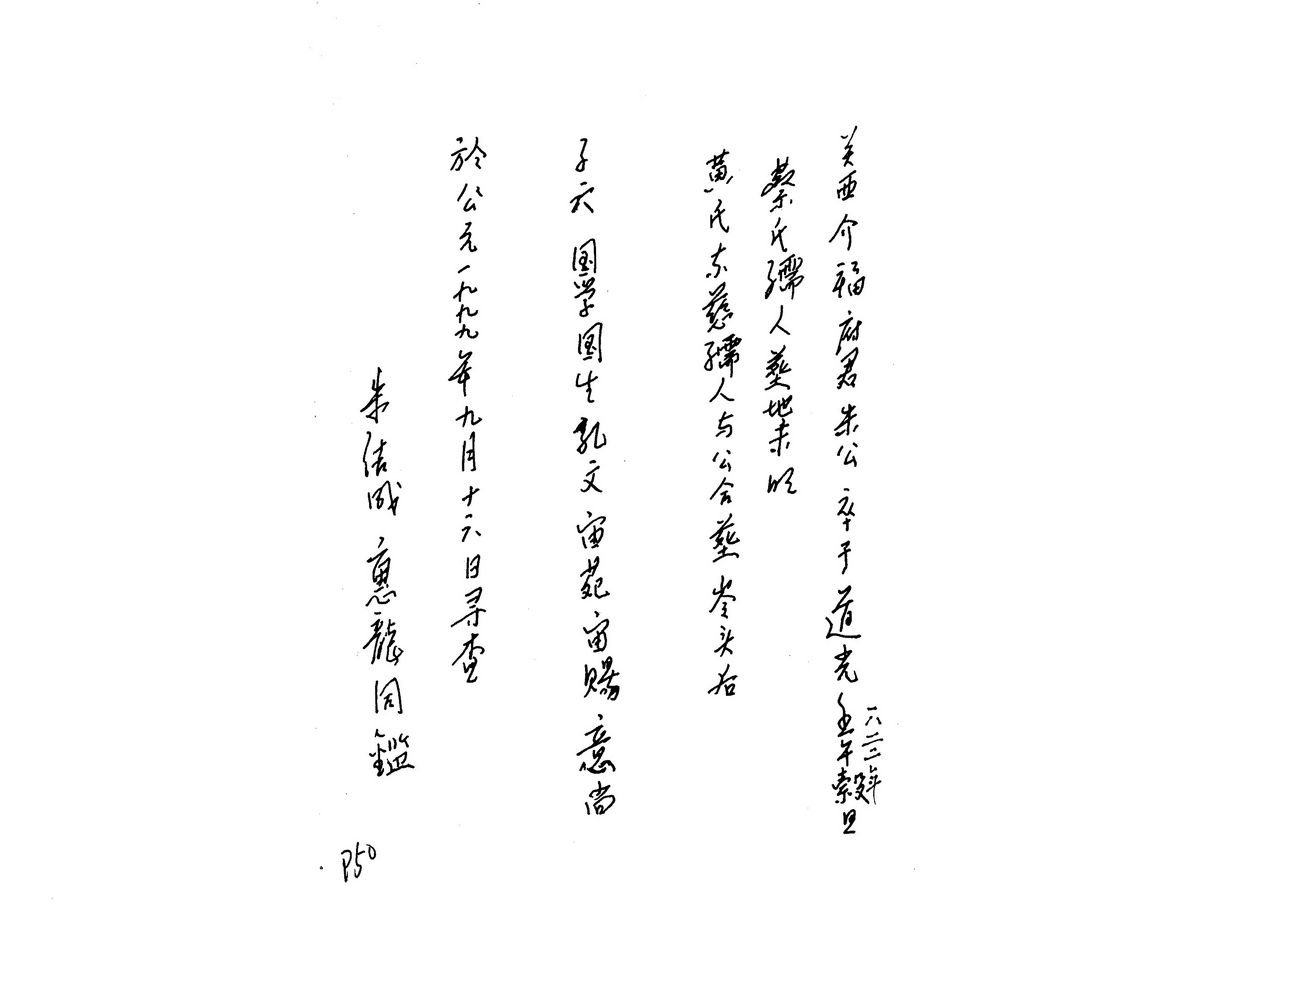 关西介福府君朱公卒于道光壬午穀旦
一八二二年
蔡氏孺人墓地未明
黄氏 慈孺人与公合墓岺头右
子六 国学国生乳文宙苑宙赐意尚
於公元一九九九年九月十六日寻查
朱结成惠龍同鑑
P50